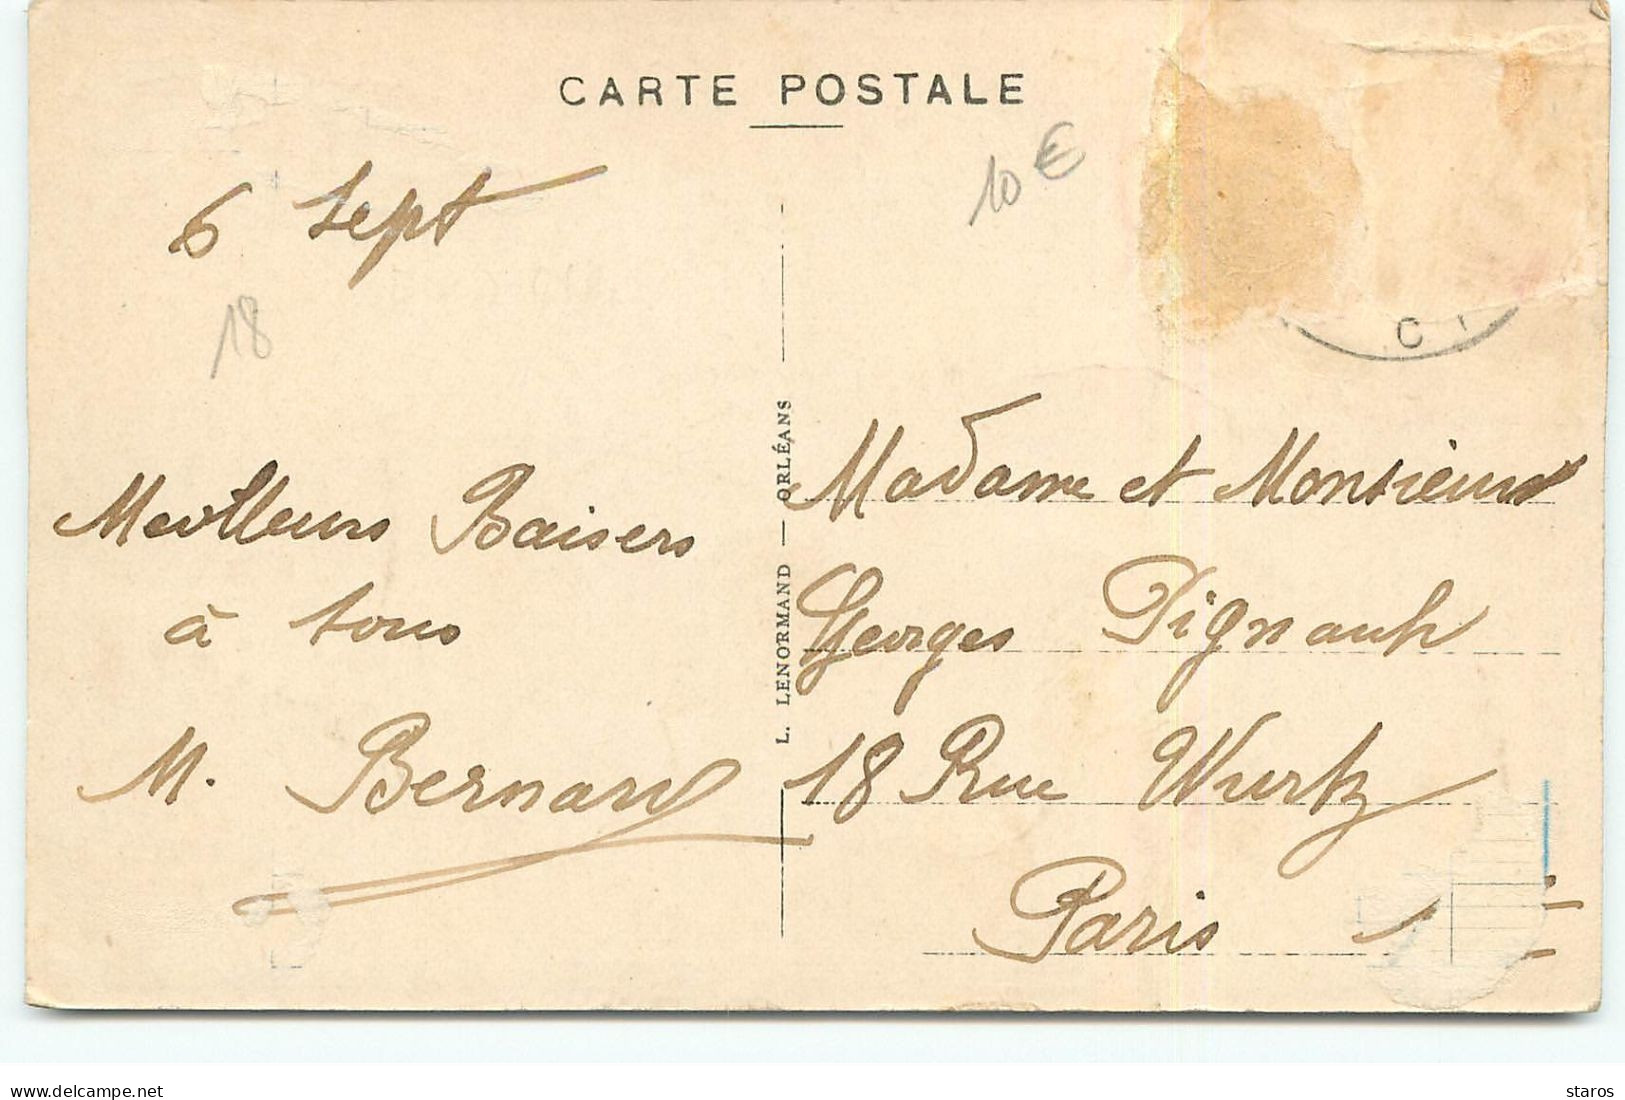 CARTE POSTALE
10 €
6 Sept
18
Meilleurs Baisers
à tous
M. Bernard
L. LENORMAND — ORLÉANS
C
Madame et Monsieur
Georges Pignault
18 Rue Wurtz
Paris
delcampe.net
staros